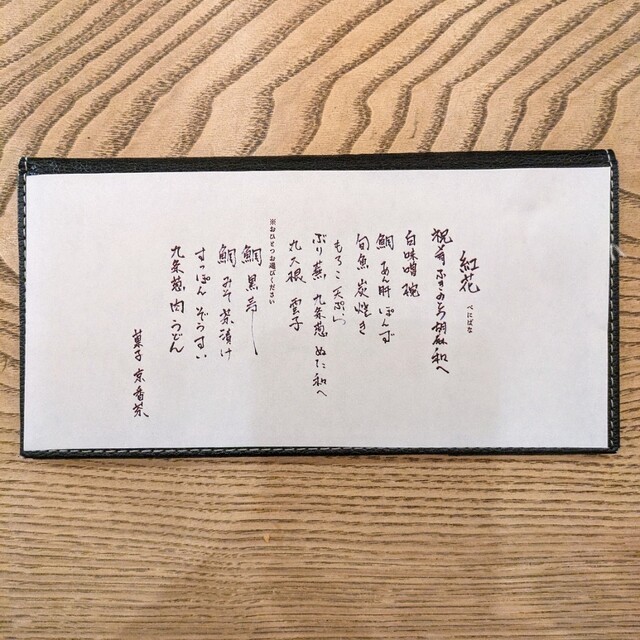 紅花
べにばな
祝肴 ふきのとう 胡麻和へ
白味噌椀
鯛 あん肝ぽんず
旬魚 炭焼き
もろこ 天ぷら
ぶり 蕪 九条葱 ぬた和へ
丸大根 雲子
※おひとつお選びください
鯛 黒寿し
鯛 みそ茶漬け
すっぽん ぞうすい
九条葱 肉うどん
菓子 京番茶